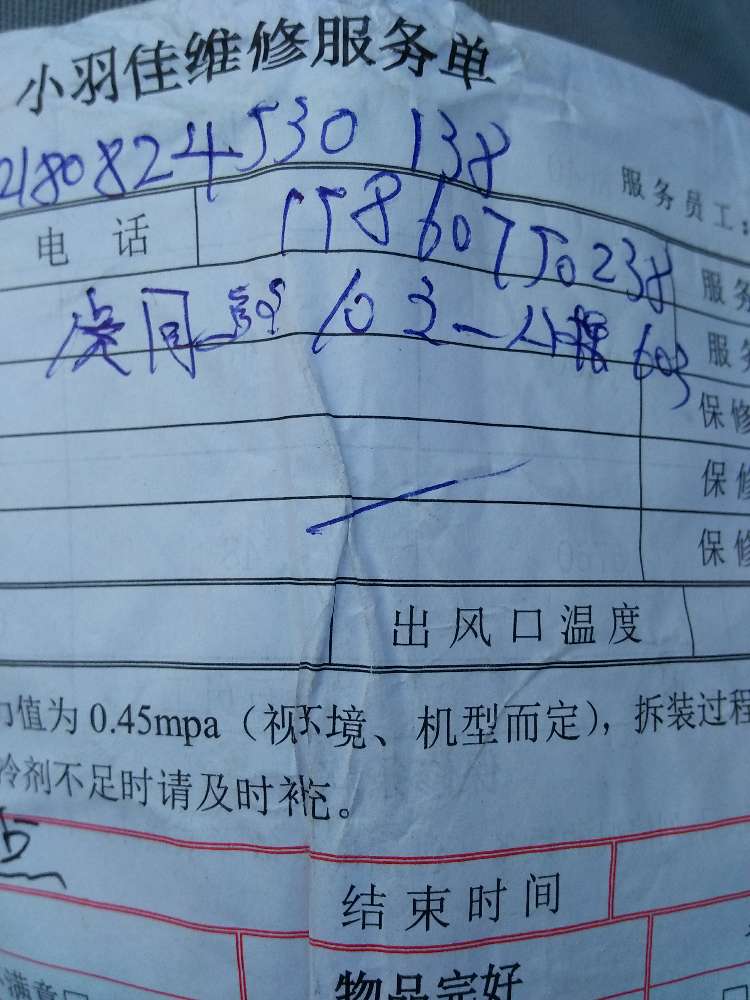 小羽佳维修服务单
2180824530 138
服务员工:
电话 15860750238
服务
103-1 603
服务
保修
保修
保修
出风口温度
力值为0.45mpa（视环境、机型而定），拆装过程
冷剂不足时请及时补充。
点
结束时间
不满意□
物品完好